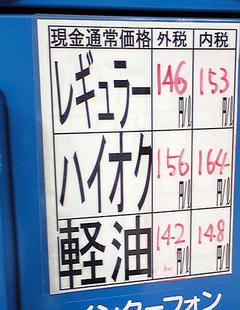 現金通常価格 外税 内税
レギュラー 146円/ℓ 153円/ℓ
ハイオク 156円/ℓ 164円/ℓ
軽油 142円/ℓ 148円/ℓ
インターフォン